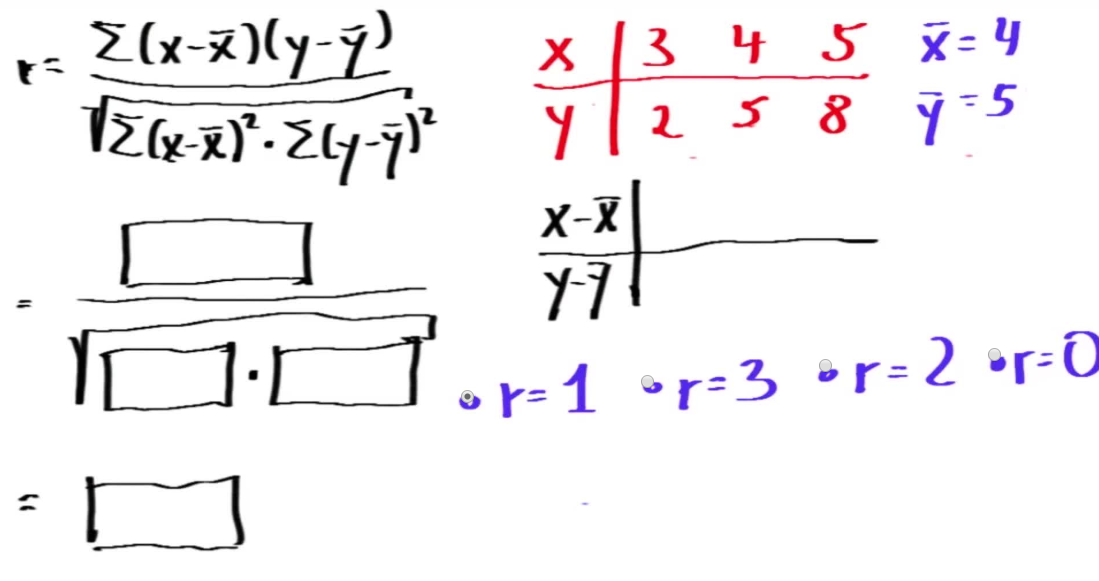 r = Σ(x-x̄)(y-ȳ)
√Σ(x-x̄)²·Σ(y-ȳ)²
x 3 4 5
y 2 5 8
x̄ = 4
ȳ = 5
x-x̄
y-ȳ
=
√ ·
• r=1 • r=3 • r=2 • r=0
=